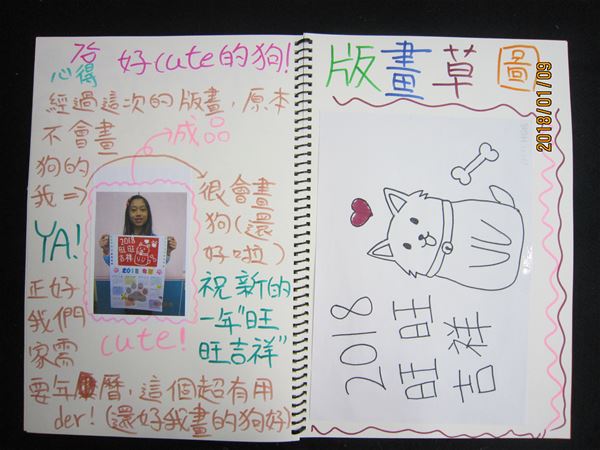 哈 好cute的狗!
心得
經過這次的版畫,原本
不會畫
狗的
我=>
成品
很會畫
狗(還
好啦)
YA!
2018
旺旺
吉祥
2018
cute!
正好
我們
家需
祝新的
一年"旺
旺吉祥"
要年曆,這個超有用
der!(還好我畫的狗好)
版畫草圖
2018
旺旺
吉祥
2018/01/09